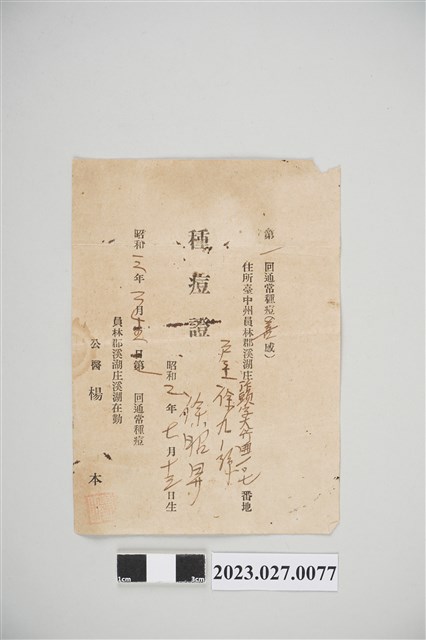 第一回通常種痘（善感）
住所臺中州員林郡溪湖庄 番地
戶主徐九
種痘證
徐昭昇
昭和二年七月十三日生
昭和 年 月 日第 回通常種痘
員林郡溪湖庄溪湖在勤
公醫 楊 本
1cm
3cm
2023.027.0077